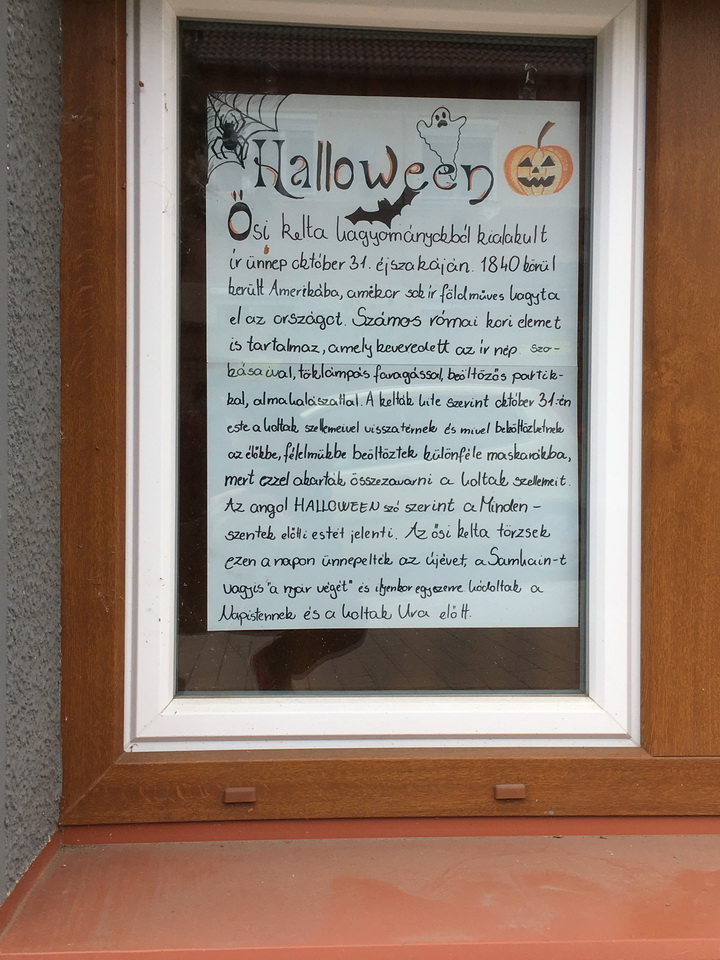 Halloween
Ősi kelta hagyományokból kialakult
ír ünnep október 31. éjszakáján. 1840 körül
került Amerikába, amikor sok ír földműves hagyta
el az országot. Számos római kori elemet
is tartalmaz, amely keveredett az ír nép szo-
kásaival, töklámpás faragással, beöltözős partik-
kal, almahalászattal. A kelták hite szerint október 31-én
este a holtak szellemeivel visszatérnek és mivel beköltözhetnek
az élőkbe, félelmükbe beöltöztek különféle maskarákba,
mert ezzel akarták összezavarni a holtak szellemeit.
Az angol HALLOWEEN szó szerint a Minden-
szentek előtti estét jelenti. Az ősi kelta törzsek
ezen a napon ünnepelték az újévet, a Samhain-t
vagyis "a nyár végét" és ilyenkor egyszerre hódoltak a
Napistennek és a holtak Ura előtt.